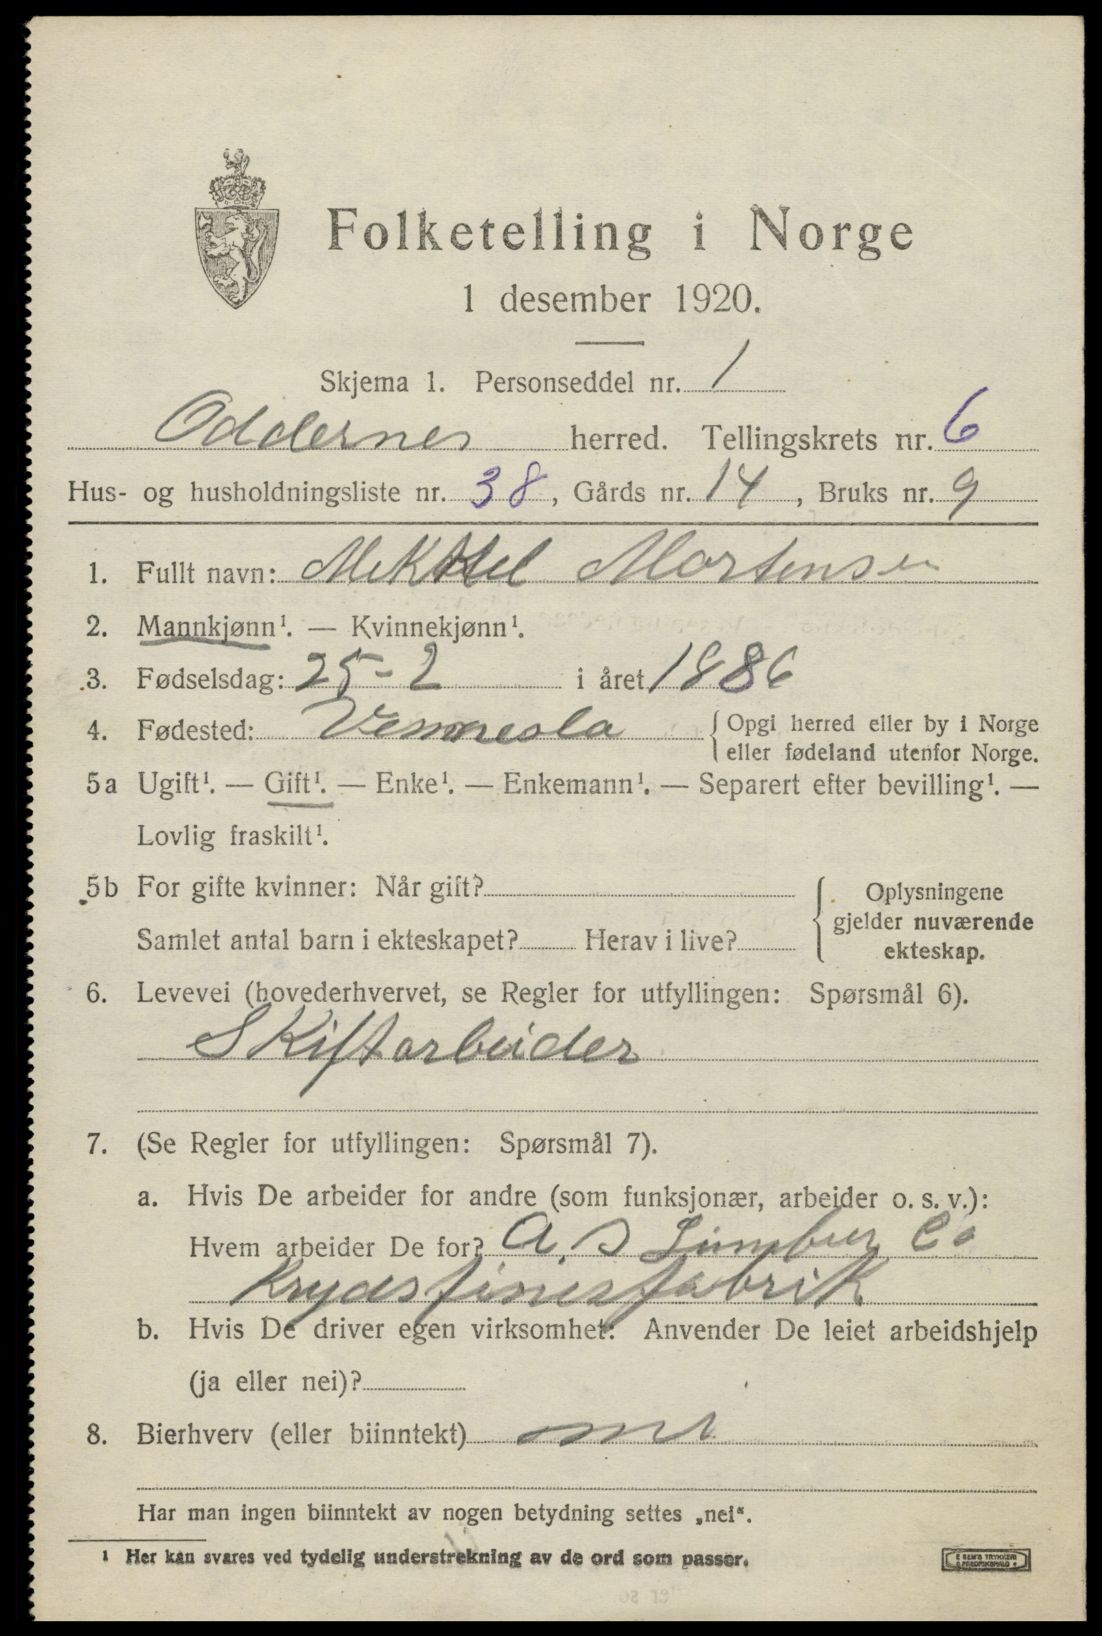 Folketelling i Norge
1 desember 1920.
Skjema 1. Personseddel nr. 1
Oddernes herred. Tellingskrets nr. 6
Hus- og husholdningsliste nr. 38, Gårds nr. 14, Bruks nr. 9
1. Fullt navn: Mikkel Mortensen
2. Mannkjønn¹. — Kvinnekjønn¹.
3. Fødselsdag: 25-2 i året 1886
4. Fødested: Vennesla { Opgi herred eller by i Norge
eller fødeland utenfor Norge.
5a Ugift¹. — Gift¹. — Enke¹. — Enkemann¹. — Separert efter bevilling¹. —
Lovlig fraskilt¹.
5b For gifte kvinner: Når gift?
Samlet antal barn i ekteskapet? Herav i live?
Oplysningene
gjelder nuværende
ekteskap.
6. Levevei (hovederhvervet, se Regler for utfyllingen: Spørsmål 6).
Skiftarbeider
7. (Se Regler for utfyllingen: Spørsmål 7).
a. Hvis De arbeider for andre (som funksjonær, arbeider o. s. v.):
Hvem arbeider De for? A S Lumber Co
Krydsfinerfabrik
b. Hvis De driver egen virksomhet: Anvender De leiet arbeidshjelp
(ja eller nei)?
8. Bierhverv (eller biinntekt) nei
Har man ingen biinntekt av nogen betydning settes „nei“.
¹ Her kan svares ved tydelig understrekning av de ord som passer.